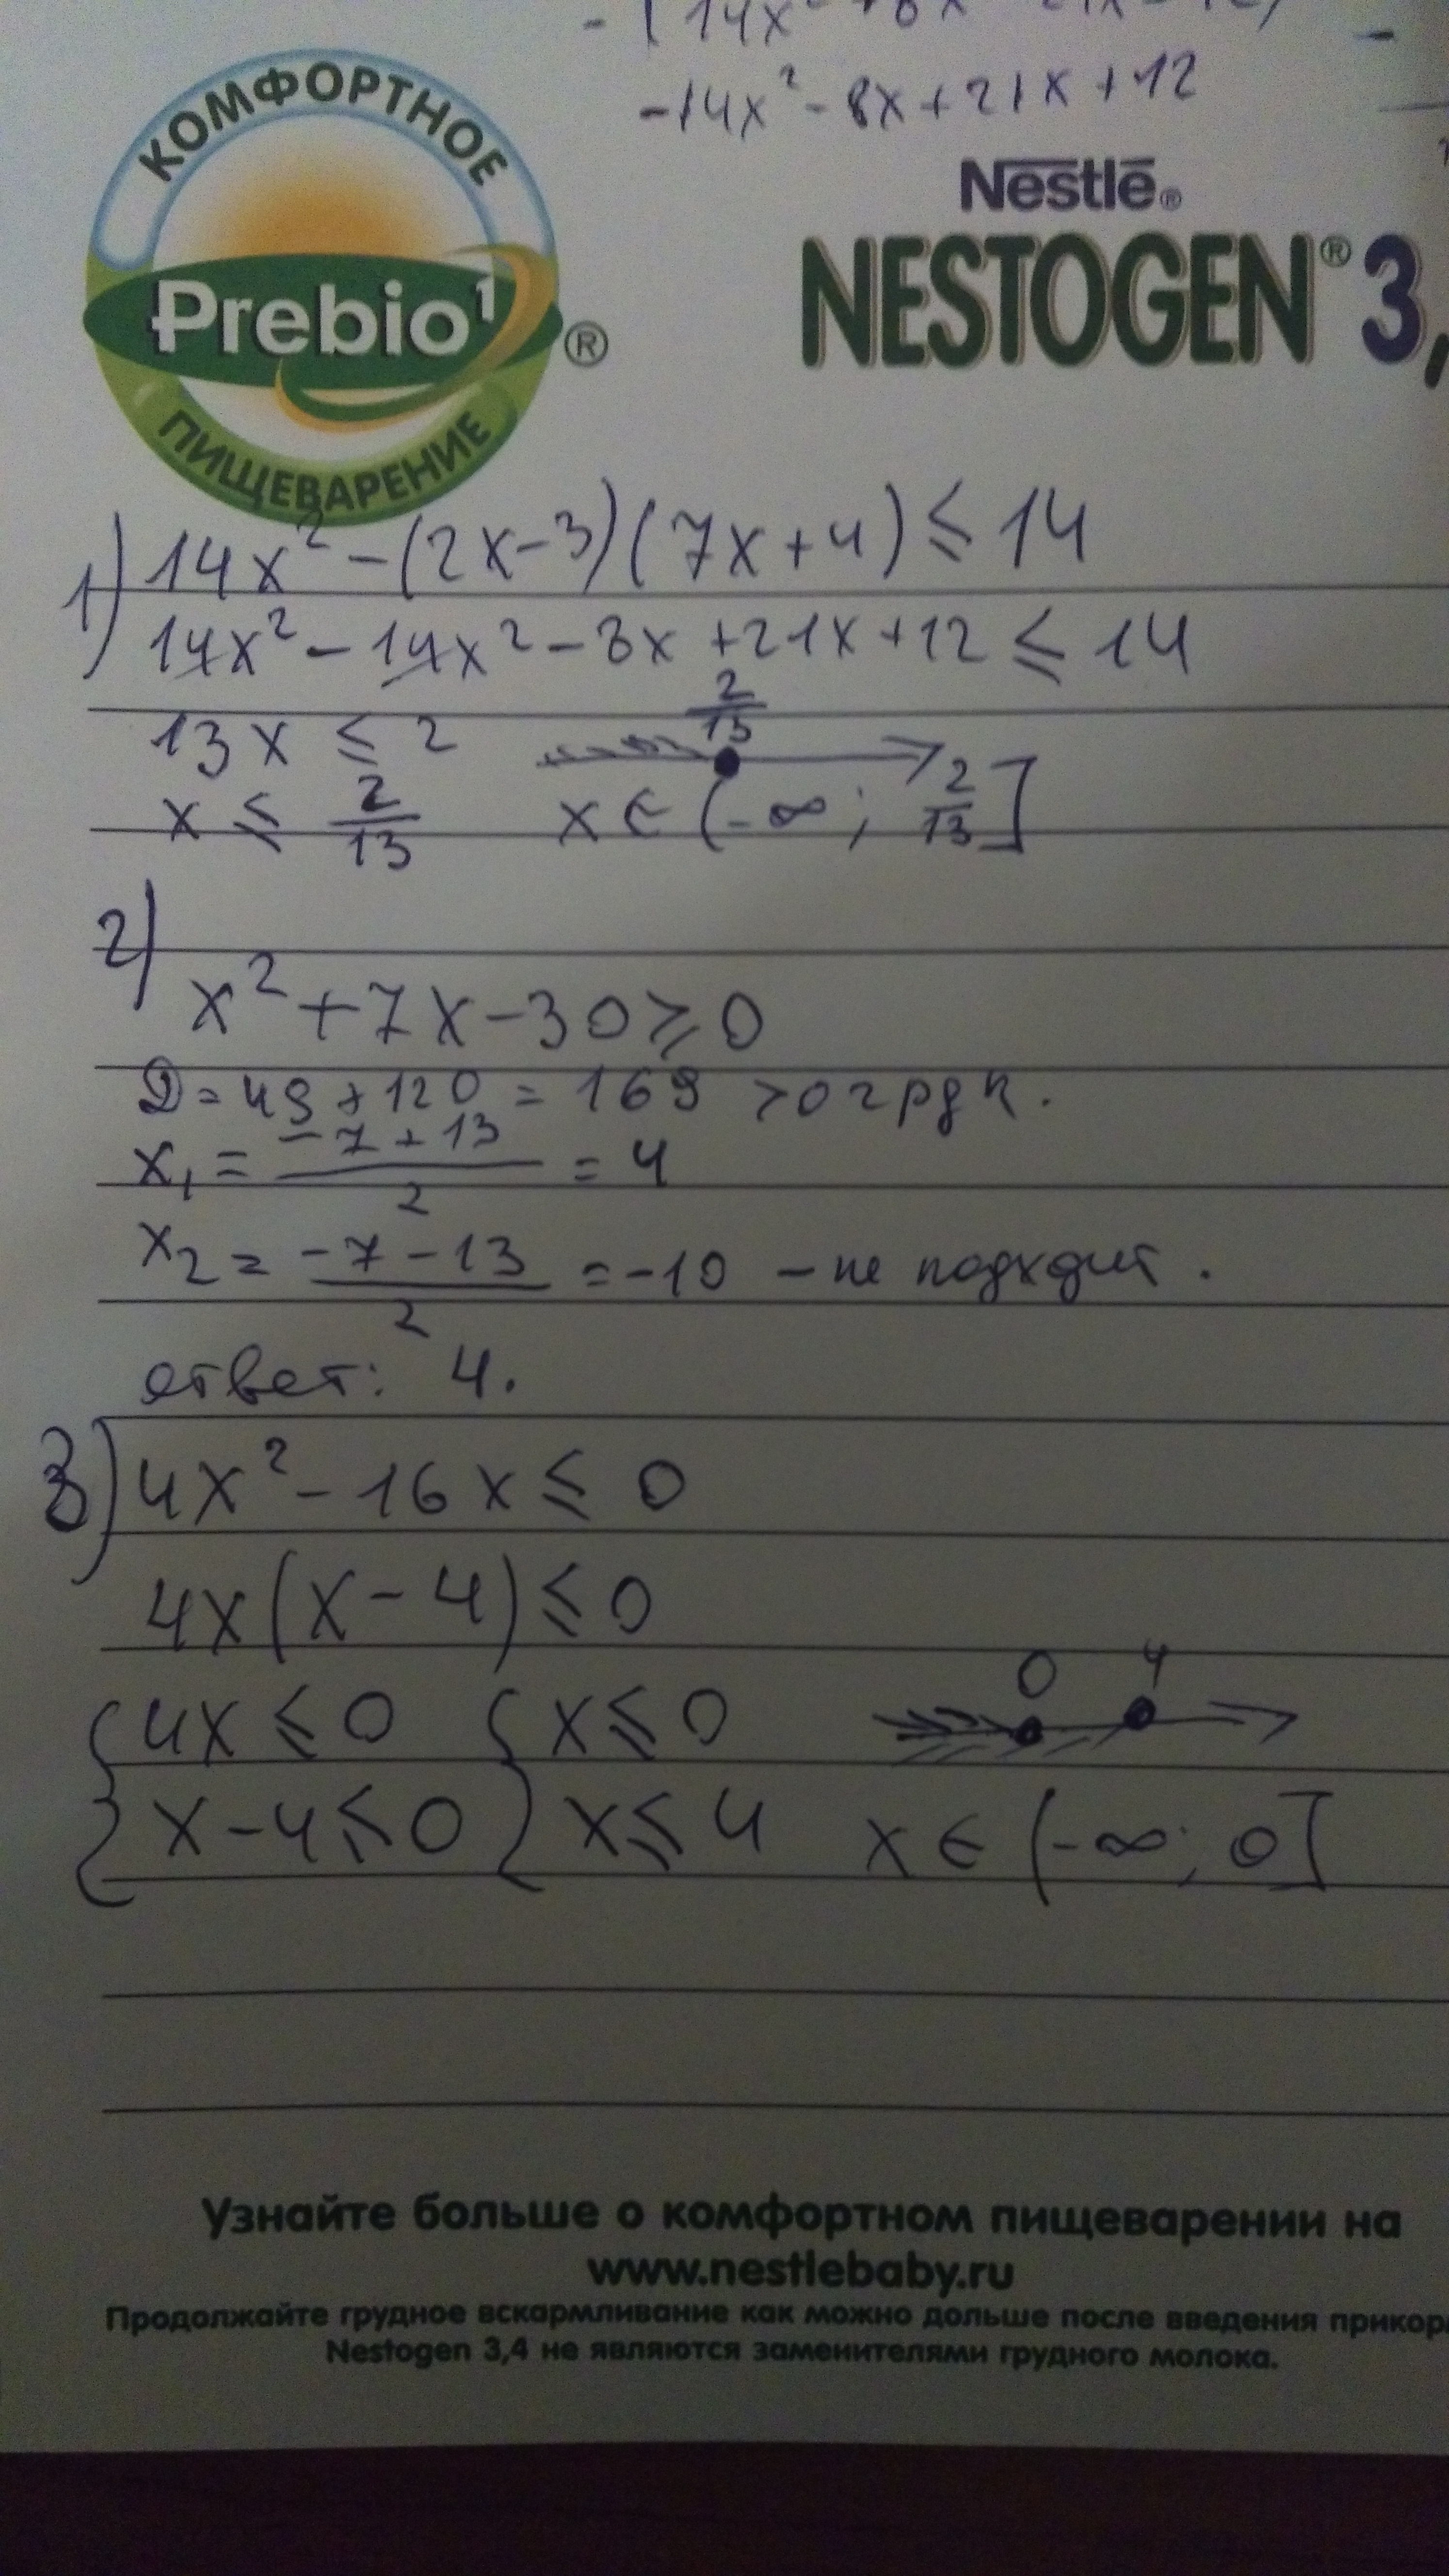 -14x² - 8x + 21x + 12
КОМФОРТНОЕ
Prebio¹®
ПИЩЕВАРЕНИЕ
Nestlé®
NESTOGEN® 3,
1) 14x² - (2x - 3)(7x + 4) ≤ 14
14x² - 14x² - 8x + 21x + 12 ≤ 14
13x ≤ 2
2/13
x ≤ 2/13 x ∈ (-∞; 2/13]
2)
x² + 7x - 30 ≥ 0
D = 49 + 120 = 169 > 0 2
x₁ = (-7 + 13)/2 = 4
x₂ = (-7 - 13)/2 = -10 - не подходит.
ответ: 4.
3) 4x² - 16x ≤ 0
4x(x - 4) ≤ 0
0 4
{4x ≤ 0 {x ≤ 0
{x - 4 ≤ 0 {x ≤ 4 x ∈ (-∞; 0]
Узнайте больше о комфортном пищеварении на
www.nestlebaby.ru
Продолжайте грудное вскармливание как можно дольше после введения прикор
Nestogen 3,4 не являются заменителями грудного молока.